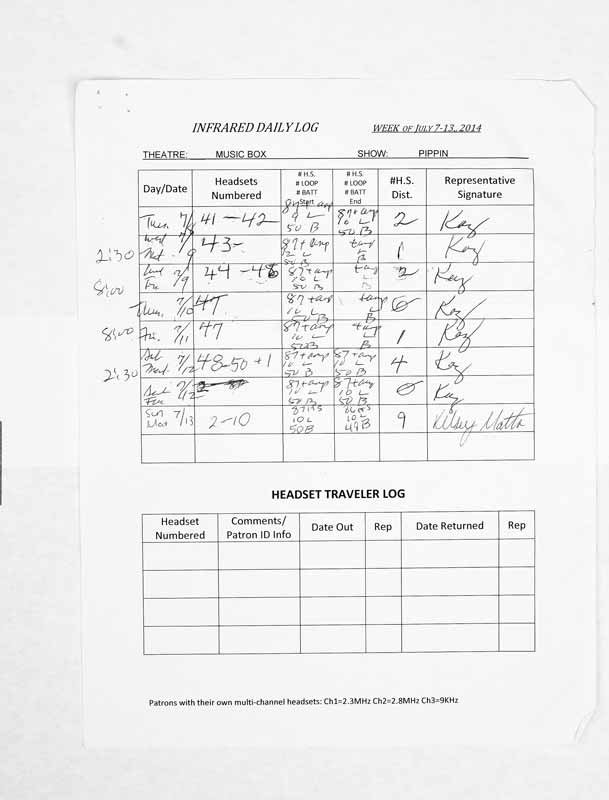 INFRARED DAILY LOG WEEK OF JULY 7-13, 2014
THEATRE: MUSIC BOX SHOW: PIPPIN
Day/Date
Headsets
Numbered
# H.S.
# LOOP
# BATT
Start
# H.S.
# LOOP
# BATT
End
#H.S.
Dist.
Representative
Signature
Tues. 7/8 41-42 9 L 50 B 87+amp 10 L 50 B 2 Kay
2:30 Wed Mat. 7/9 43- 87+amp 12 L 50 B L B 1 Kay
8:00 7/9 44-46 87+amp 10 L 50 B L B Kay
Thurs. 7/10 47 87+amp 10 L 50 B L B 0 Kay
8:00 Fri. 7/11 47 87+amp 10 L 50B L B 1 Kay
2:30 Sat Mat. 7/12 48-50 +1 87+amp 10 L 50 B 87+amp 10 L 50 B 4 Kay
7/12 87+amp 10 L 50 B 87+amp 10 L 50 B 0 Kay
Sun Mat 7/13 2-10 10L 50B 10L 49B 9 Kelsey
HEADSET TRAVELER LOG
Headset
Numbered
Comments/
Patron ID Info
Date Out
Rep
Date Returned
Rep
Patrons with their own multi-channel headsets: Ch1=2.3MHz Ch2=2.8MHz Ch3=9KHz